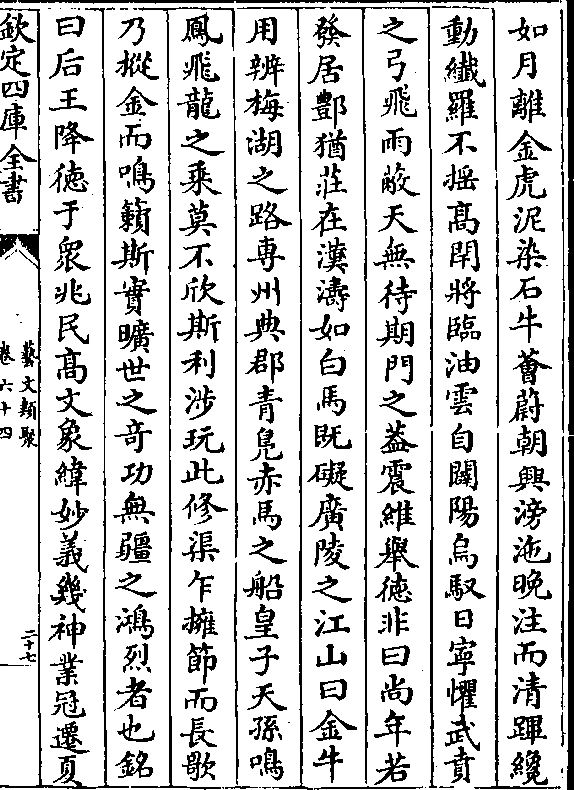 如月離金虎泥染石牛薈蔚朝興滂沲晚注而清蹕纔
動纖羅不揺髙閈將臨油雲自闢陽烏馭日寧懼武賁
之弓飛雨蔽天無待期門之葢震維舉徳非曰尚年若
發居酆猶莊在漢濤如白馬既礙廣陵之江山曰金牛
用辨梅湖之路専州典郡青鳬赤馬之船皇子天孫鳴
鳳飛龍之乗莫不欣斯利渉玩此修渠乍擁節而長歌
乃摐金而鳴籟斯實曠世之竒功無疆之鴻烈者也銘
曰后王降徳于衆兆民髙文象緯妙義幾神業冠遷夏
欽定四庫全書
藝文類聚
卷六十四
二十七